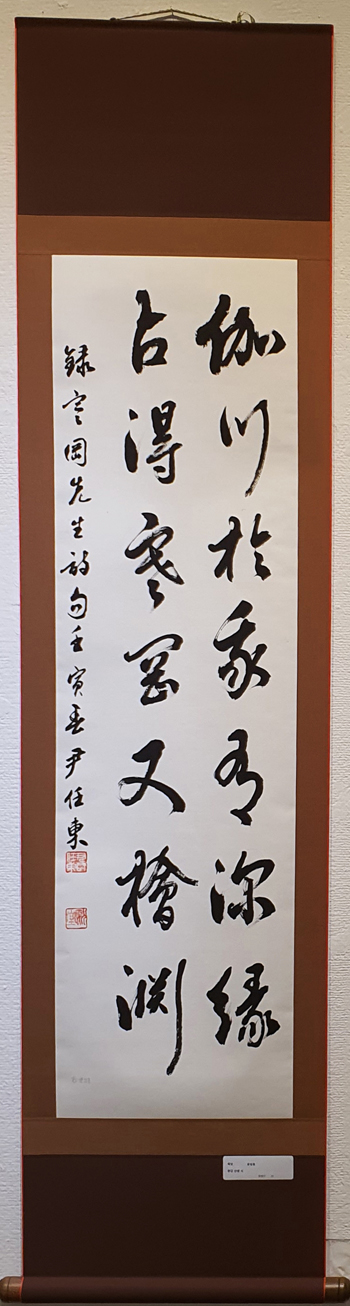 伽川於我有深緣
占得寒岡又檜淵
錄寒岡先生詩句壬寅春尹任東